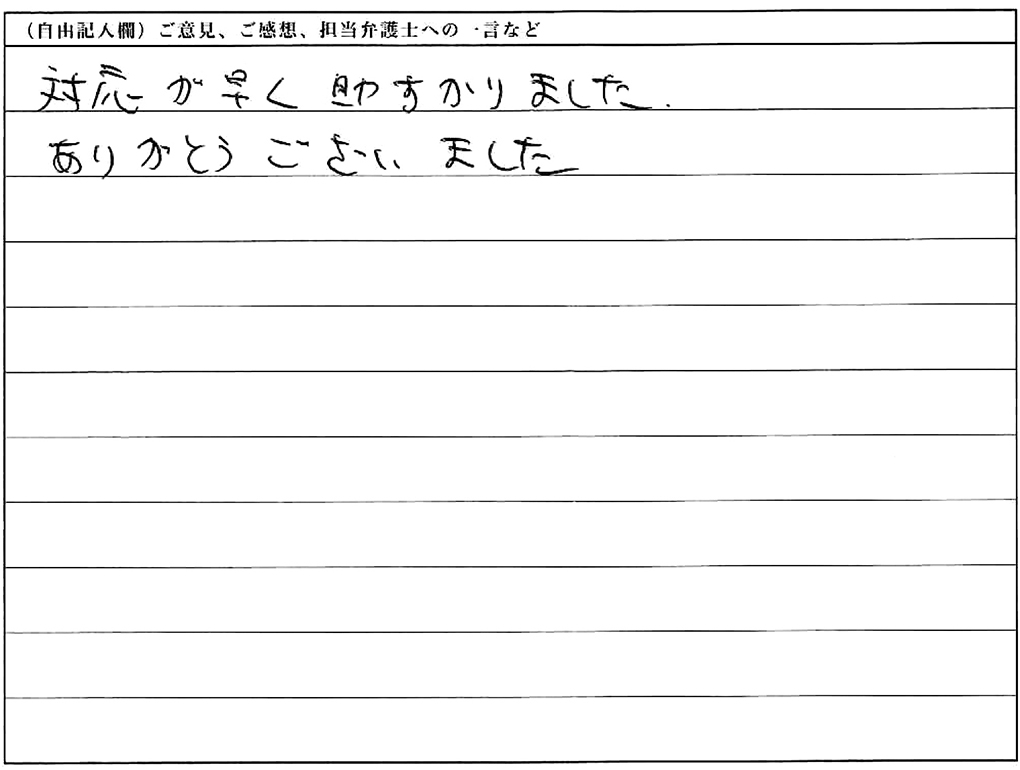 （自由記入欄）ご意見、ご感想、担当弁護士への一言など
対応が早く助すかりました.
ありがとうございました